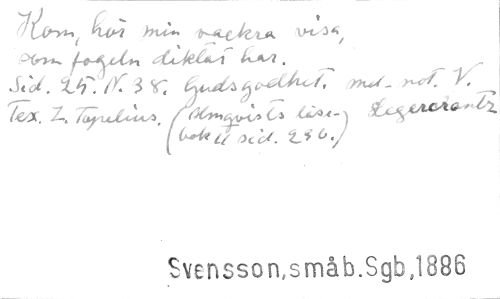 Kom, hör min vackra visa,
som fogeln diktat har.
Sid. 25. N. 38. Gudsgodhet. med not. V.
Tex. Z. Topelius. (Almqvists läse- Segercrantz
bok II sid. 296.)
Svensson,småb.Sgb,1886